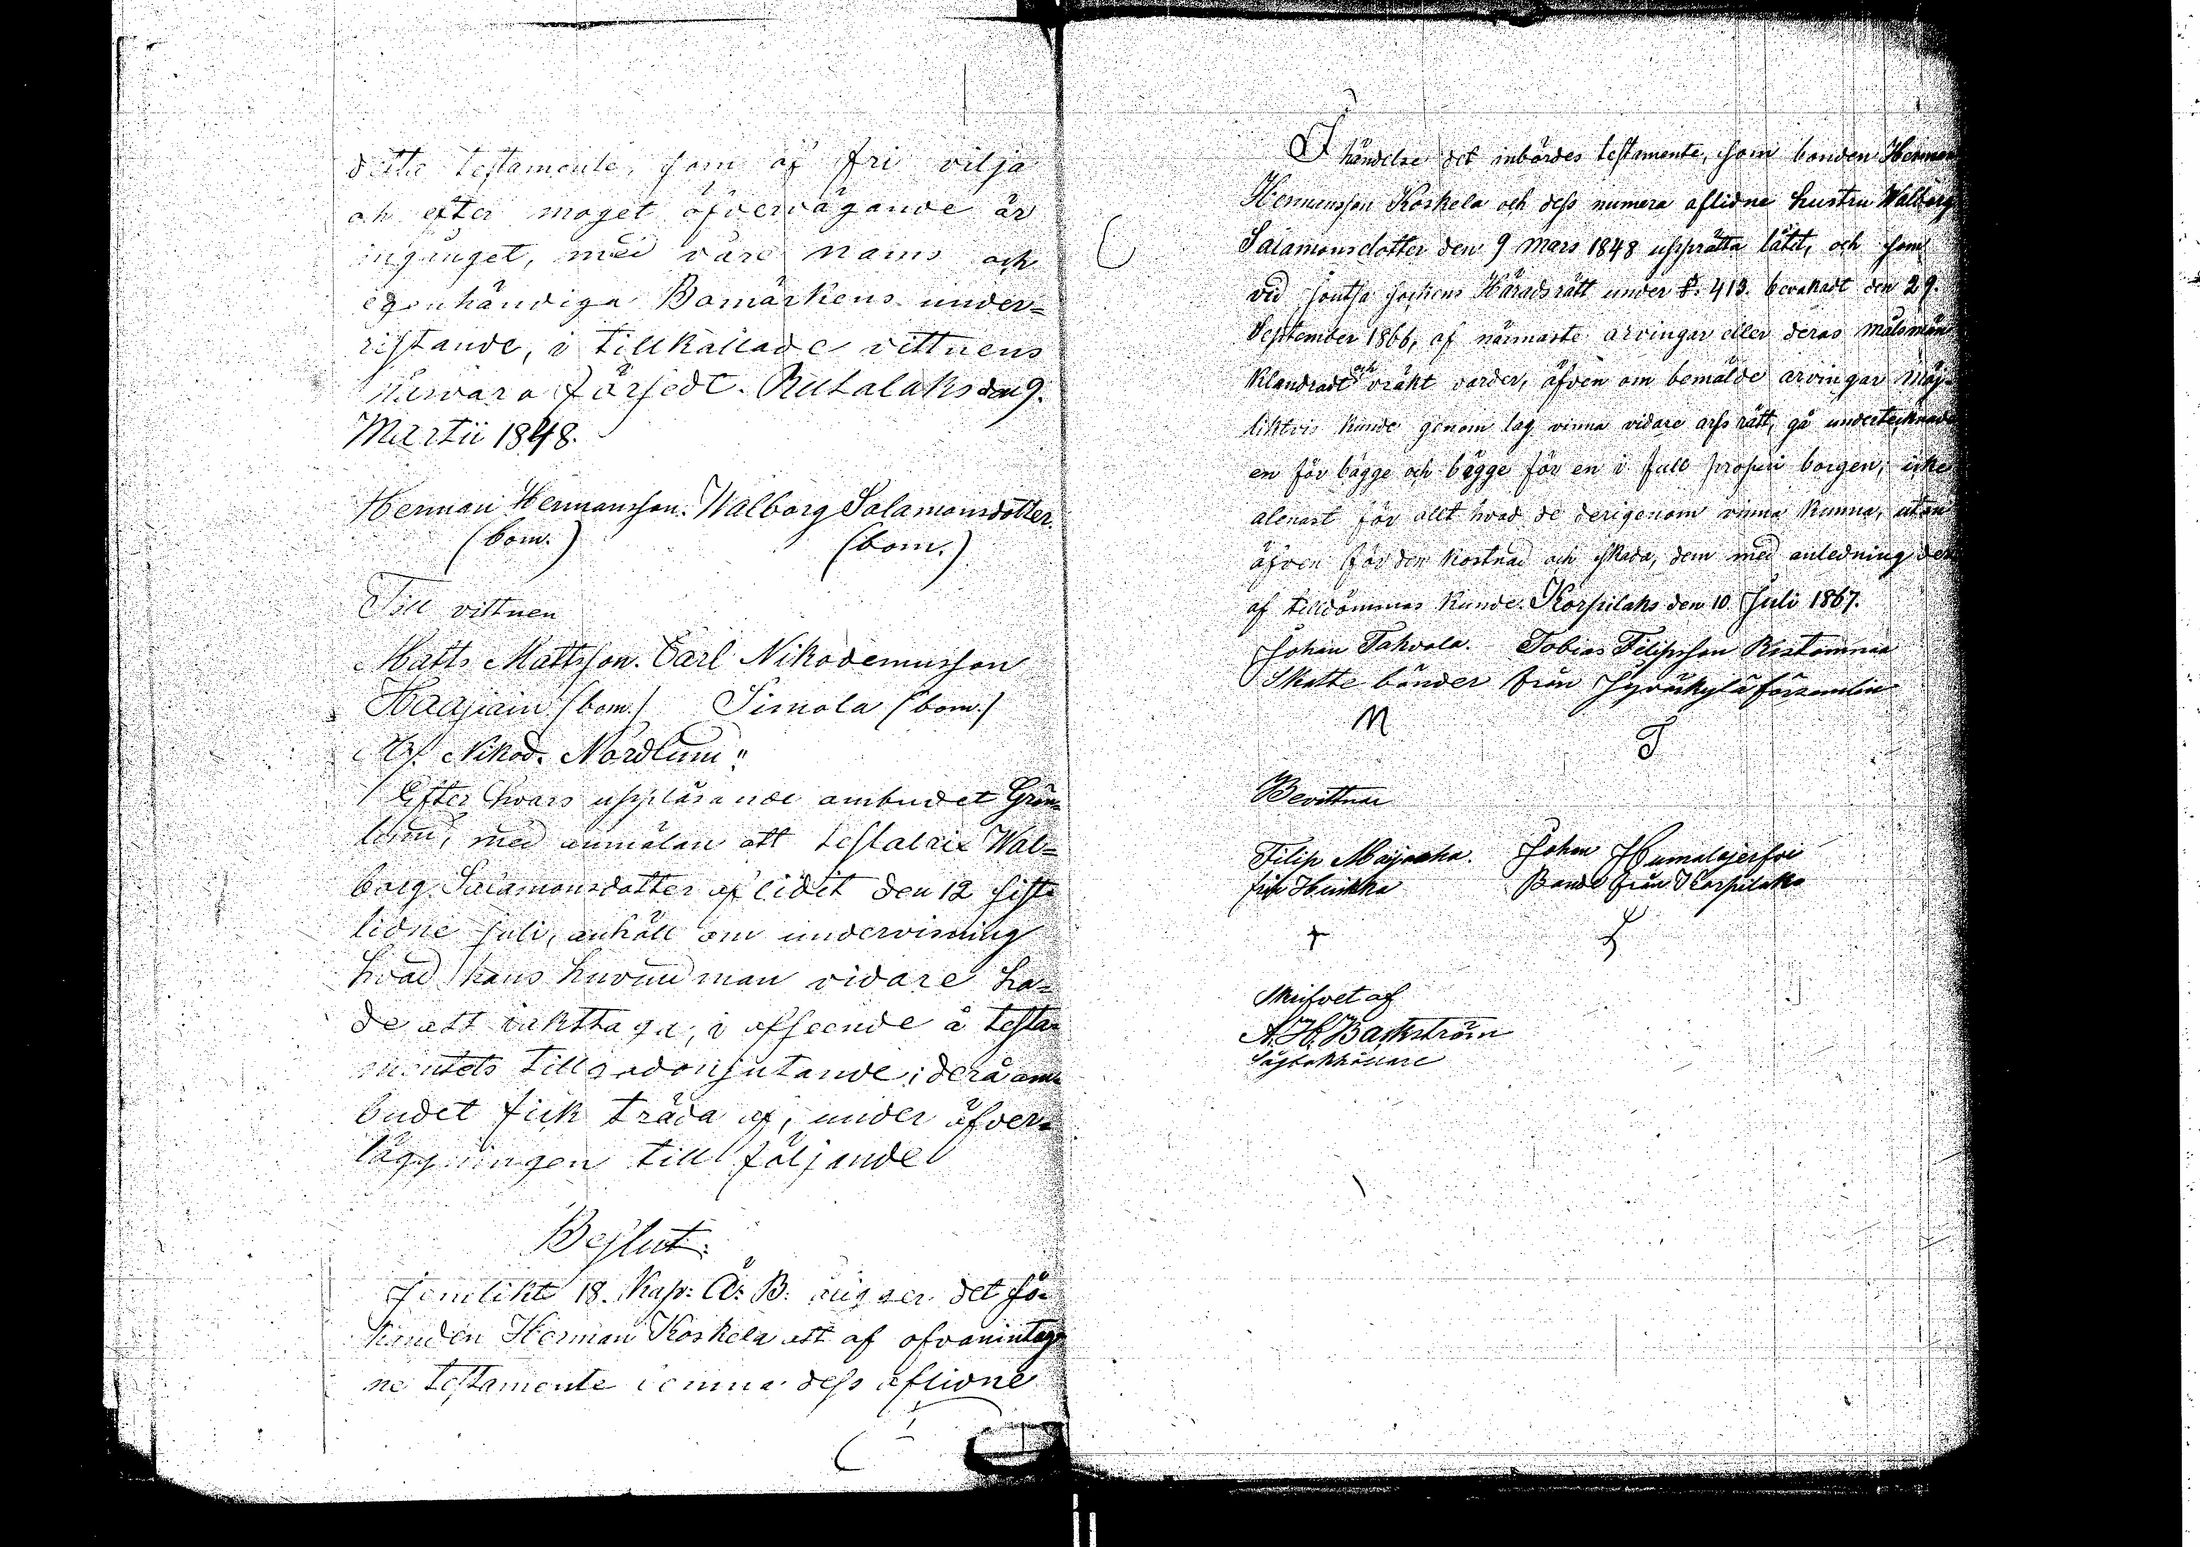 detta testamente, som af fri vilja
och efter moget öfvervägande är
ingånget, med våre namns och
egenhändiga Bomärkens under-
ristande, i tillkallade vittnens
närvaro försedt. Rutalaks den 9.
Martii 1848.
Herman Hermansson. Walborg Salamonsdotter.
(bom.) (bom.)
Till vittnen
Matts Mattsson. Carl Nikodemusson
Haajiain (bom.) Simola (bom.)
Nikod. Nordlund"
Efter hvars uppläsande ombudet Grön-
lund, med anmälan att testatrix Wal-
borg Salamonsdotter aflidit den 12 sist-
lidne Juli, anhöll om undervisning
hvad hans hufvudman vidare ha-
de att iakttaga, i afseende å testa-
mentets tillgodonjutande; derå om-
budet fick träda af, under öfver-
läggningen till följande
Beslut:
Jemlikt 18. Kap: Ä: B: åligger det sö-
kanden Herman Koskela att af ofvanintag-
ne testamente lemna dess aflidne
I händelse det inbördes testamente, som bonden Herman
Hermansson Koskela och dess numera aflidne hustru Walborg
Salamonsdotter den 9 Mars 1848 upprätta låtit, och som
vid Joutsa sockens Häradsrätt under §. 413. bevakadt den 29.
September 1866, af närmaste arvingar eller deras målsmän
klandradt och vräkt varder, äfven om bemälde arvingar möj-
ligtvis kunde genom lag vinna vidare arfsrätt, gå undertecknade
en för bägge och bägge för en i full proprie borgen, icke
alenast för allt hvad de derigenom vinna kunna, utan
äfven för den kostnad och skada, dem med anledning der
af tilldömmas kunde. Korpilaks den 10 Juli 1867.
Johan Tahvola. Tobias Filipsson Ristonmaa
Skatte bönder från Jyväskylä församlin
M
T
Bevittnar
Filip Maijanha. Johan Humalajerfvi
från Huikka Bonde från Korpilaks
Skrifvet af
A. H. Backström
Sågbokhållare